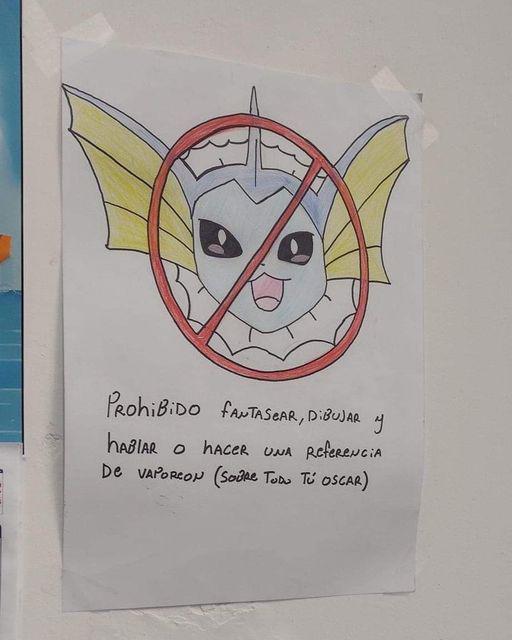 PROHIBIDO FANTASEAR, DIBUJAR y
HABLAR O HACER UNA REFERENCIA
DE VAPOREON (SOBRE TODO TÚ OSCAR)